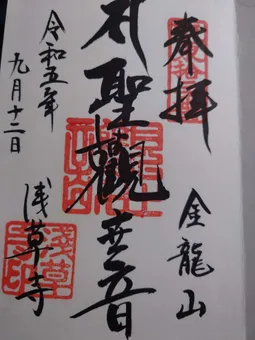 奉拝
金龍山
聖觀世音
令和五年
九月十二日
浅草寺